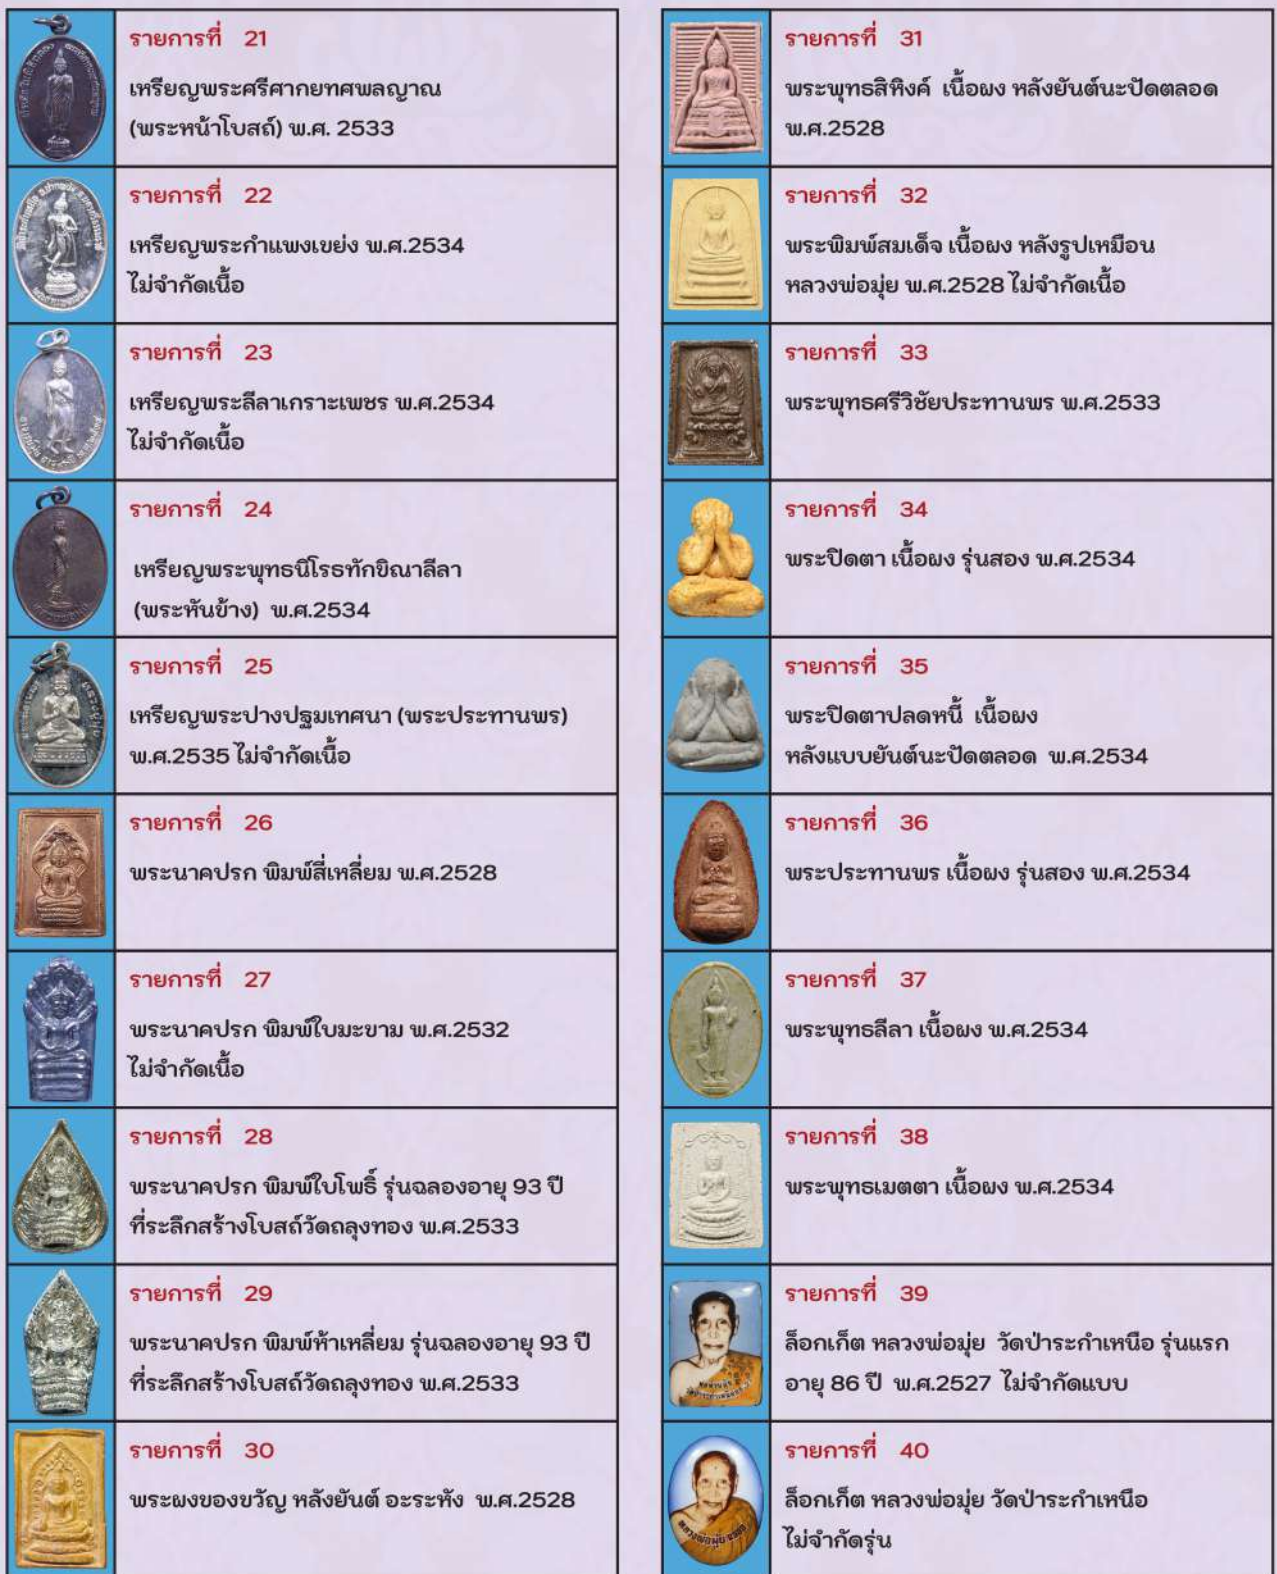 รายการที่ 21
เหรียญพระศรีศากยทศพลญาณ
(พระหน้าโบสถ์) พ.ศ. 2533
รายการที่ 22
เหรียญพระกำแพงเขย่ง พ.ศ.2534
ไม่จำกัดเนื้อ
รายการที่ 23
เหรียญพระลีลาเกราะเพชร พ.ศ.2534
ไม่จำกัดเนื้อ
รายการที่ 24
เหรียญพระพุทธนิโรธทักขิณาลีลา
(พระหันข้าง) พ.ศ.2534
รายการที่ 25
เหรียญพระปางปฐมเทศนา (พระประทานพร)
พ.ศ.2535 ไม่จำกัดเนื้อ
รายการที่ 26
พระนาคปรก พิมพ์สี่เหลี่ยม พ.ศ.2528
รายการที่ 27
พระนาคปรก พิมพ์ใบมะขาม พ.ศ.2532
ไม่จำกัดเนื้อ
รายการที่ 28
พระนาคปรก พิมพ์ใบโพธิ์ รุ่นฉลองอายุ 93 ปี
ที่ระลึกสร้างโบสถ์วัดถลุงทอง พ.ศ.2533
รายการที่ 29
พระนาคปรก พิมพ์ห้าเหลี่ยม รุ่นฉลองอายุ 93 ปี
ที่ระลึกสร้างโบสถ์วัดถลุงทอง พ.ศ.2533
รายการที่ 30
พระผงของขวัญ หลังยันต์ อะระหัง พ.ศ.2528
รายการที่ 31
พระพุทธสิหิงค์ เนื้อผง หลังยันต์นะปัดตลอด
พ.ศ.2528
รายการที่ 32
พระพิมพ์สมเด็จ เนื้อผง หลังรูปเหมือน
หลวงพ่อมุ่ย พ.ศ.2528 ไม่จำกัดเนื้อ
รายการที่ 33
พระพุทธศรีวิชัยประทานพร พ.ศ.2533
รายการที่ 34
พระปิดตา เนื้อผง รุ่นสอง พ.ศ.2534
รายการที่ 35
พระปิดตาปลดหนี้ เนื้อผง
หลังแบบยันต์นะปัดตลอด พ.ศ.2534
รายการที่ 36
พระประทานพร เนื้อผง รุ่นสอง พ.ศ.2534
รายการที่ 37
พระพุทธลีลา เนื้อผง พ.ศ.2534
รายการที่ 38
พระพุทธเมตตา เนื้อผง พ.ศ.2534
รายการที่ 39
ล็อกเก็ต หลวงพ่อมุ่ย วัดป่าระกำเหนือ รุ่นแรก
อายุ 86 ปี พ.ศ.2527 ไม่จำกัดแบบ
รายการที่ 40
ล็อกเก็ต หลวงพ่อมุ่ย วัดป่าระกำเหนือ
ไม่จำกัดรุ่น